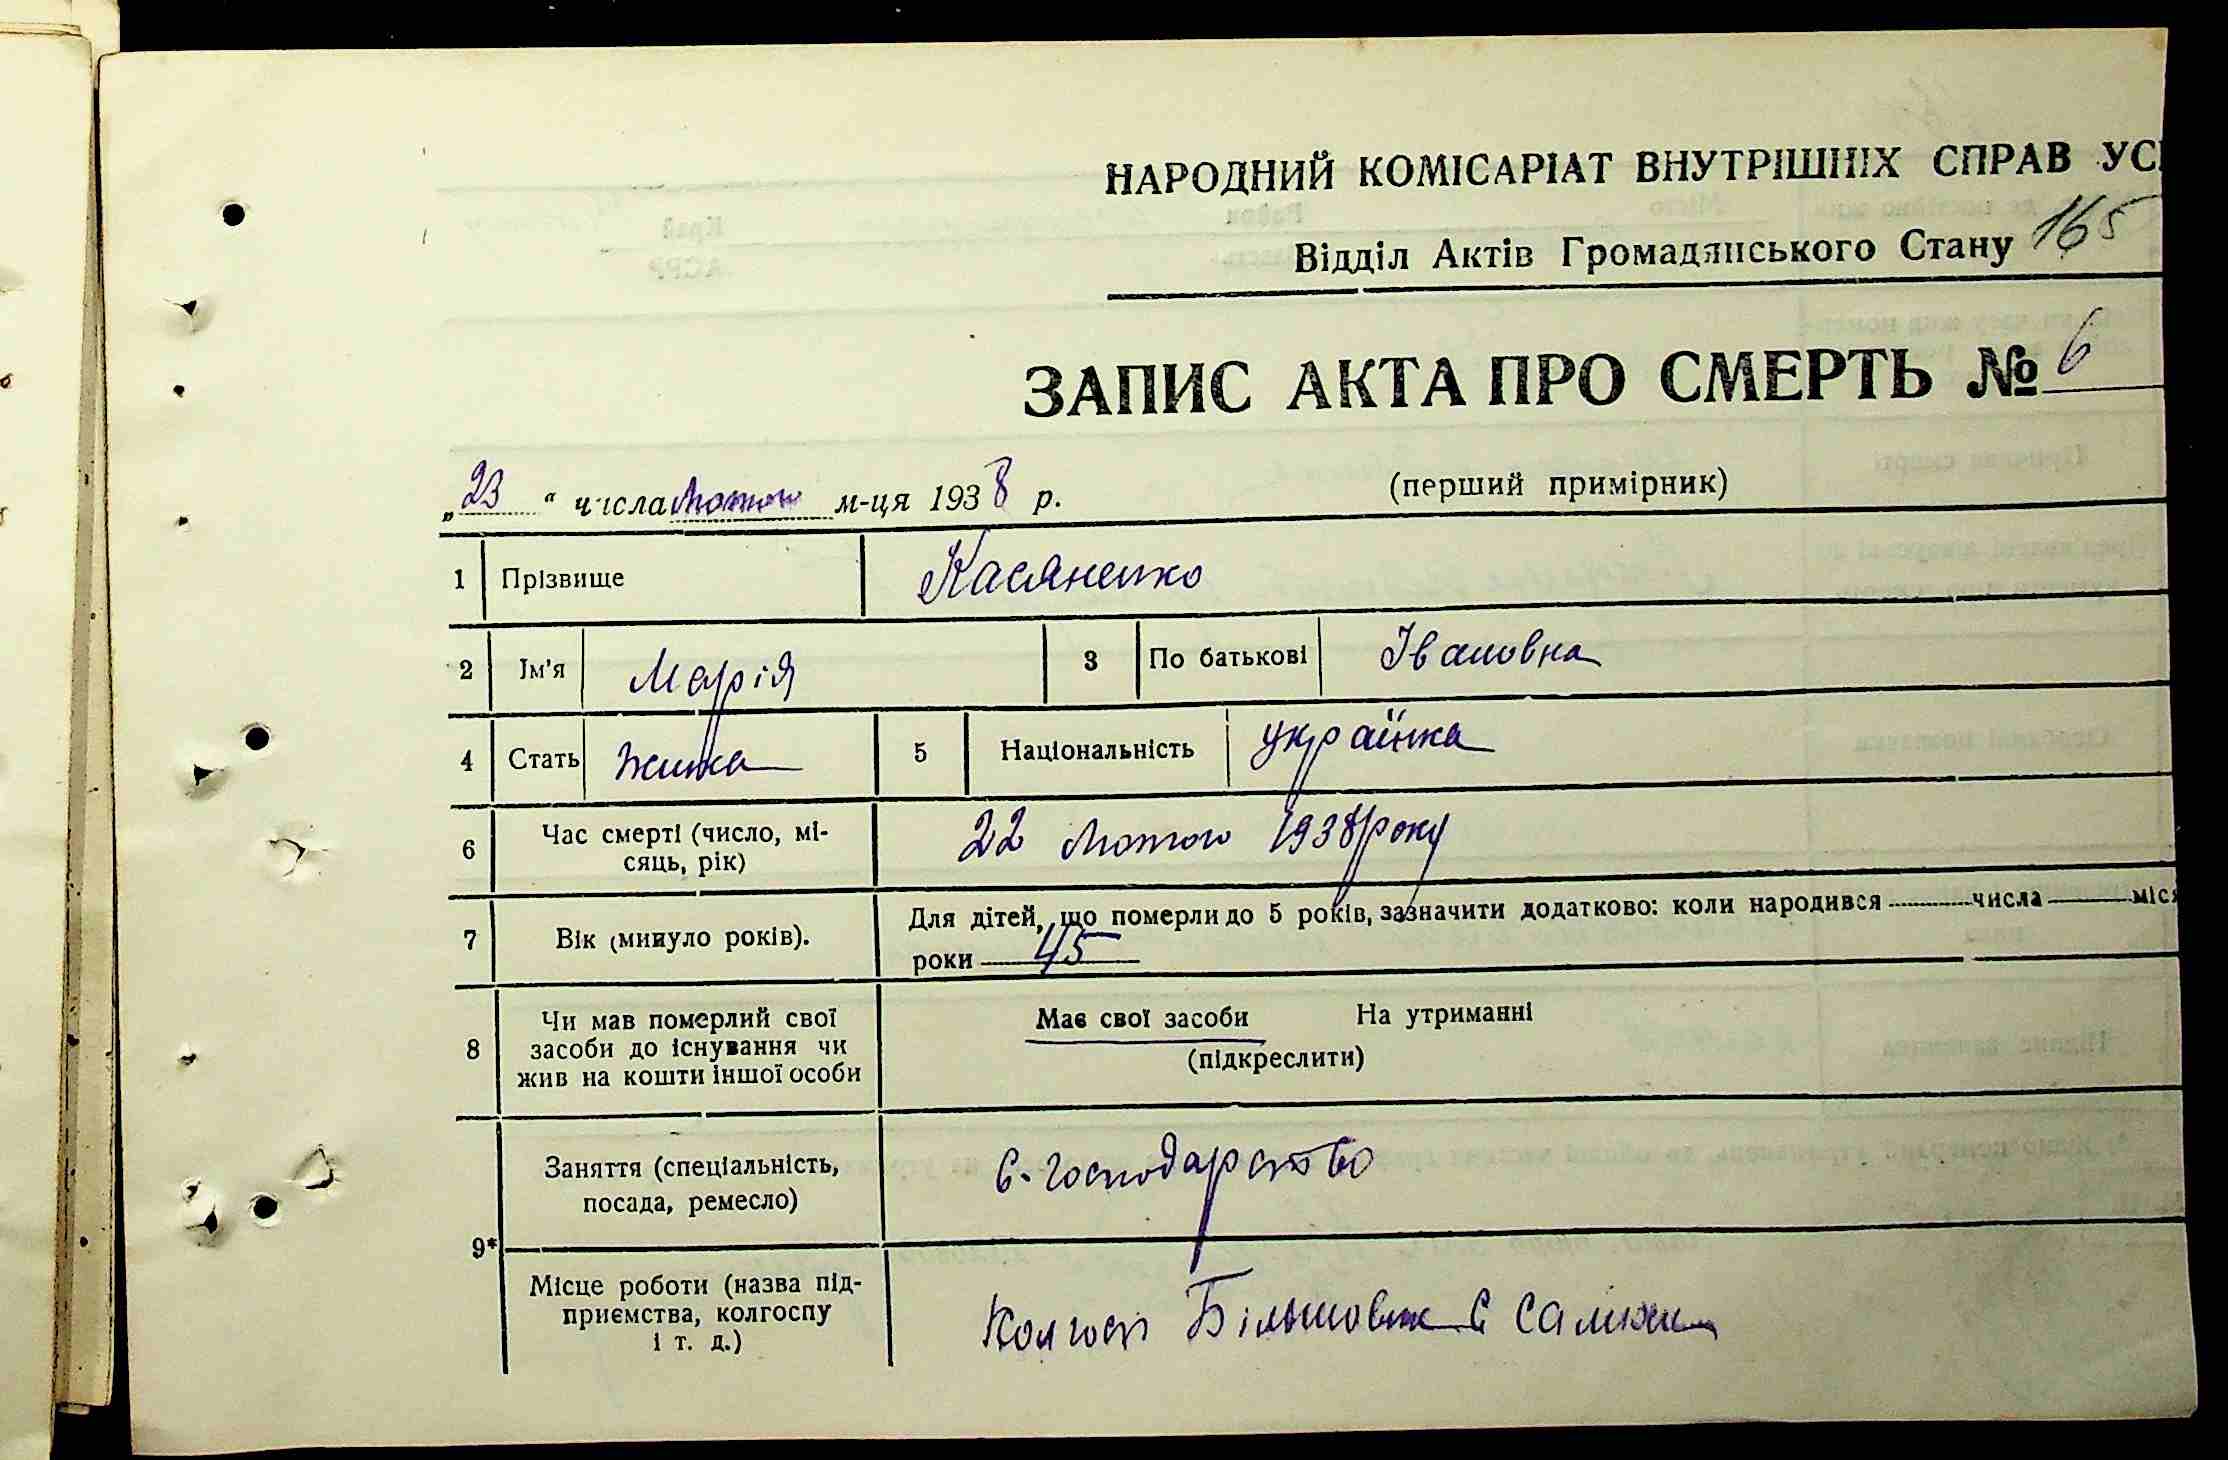 НАРОДНИЙ КОМІСАРІАТ ВНУТРІШНІХ СПРАВ УС
Відділ Актів Громадянського Стану 165
ЗАПИС АКТА ПРО СМЕРТЬ № 6
„23“ числа лютого м-ця 1938 р. (перший примірник)
1 Прізвище Касяненко
2 Ім'я Марія 3 По батькові Івановна
4 Стать жінка 5 Національність українка
6 Час смерті (число, мі-
сяць, рік) 22 лютого 1938 року
7 Вік (минуло років). Для дітей, що померли до 5 років, зазначити додатково: коли народився числа міся
роки 45
8 Чи мав померлий свої
засоби до існування чи
жив на кошти іншої особи
Має свої засоби На утриманні
(підкреслити)
9* Заняття (спеціальність,
посада, ремесло) с-господарство
Місце роботи (назва під-
приємства, колгоспу
і т. д.)
Колгосп Більшовик с